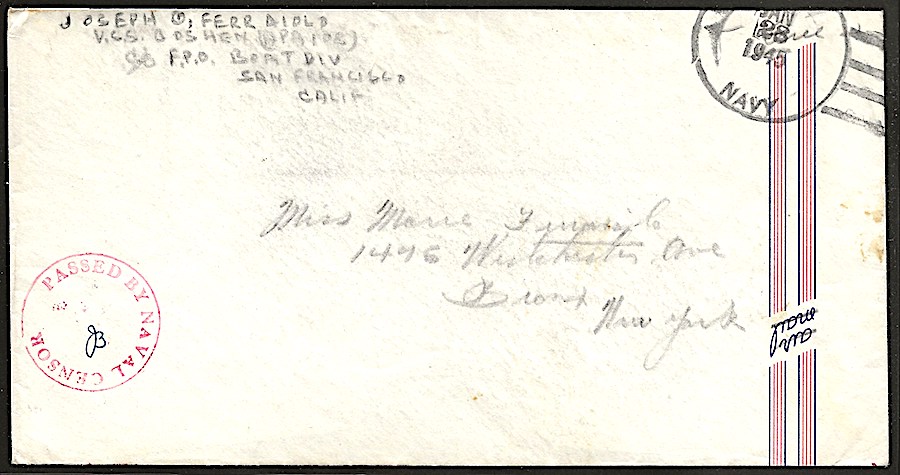 JOSEPH O. FERRAIOLO
U.S.S. GOSHEN (APA 108)
F.P.O. BOAT DIV
SAN FRANCISCO
CALIF
JAN
28
1945
NAVY
Miss Marie
1476 Westchester Ave
Bronx
New York
PASSED BY NAVAL CENSOR
JB